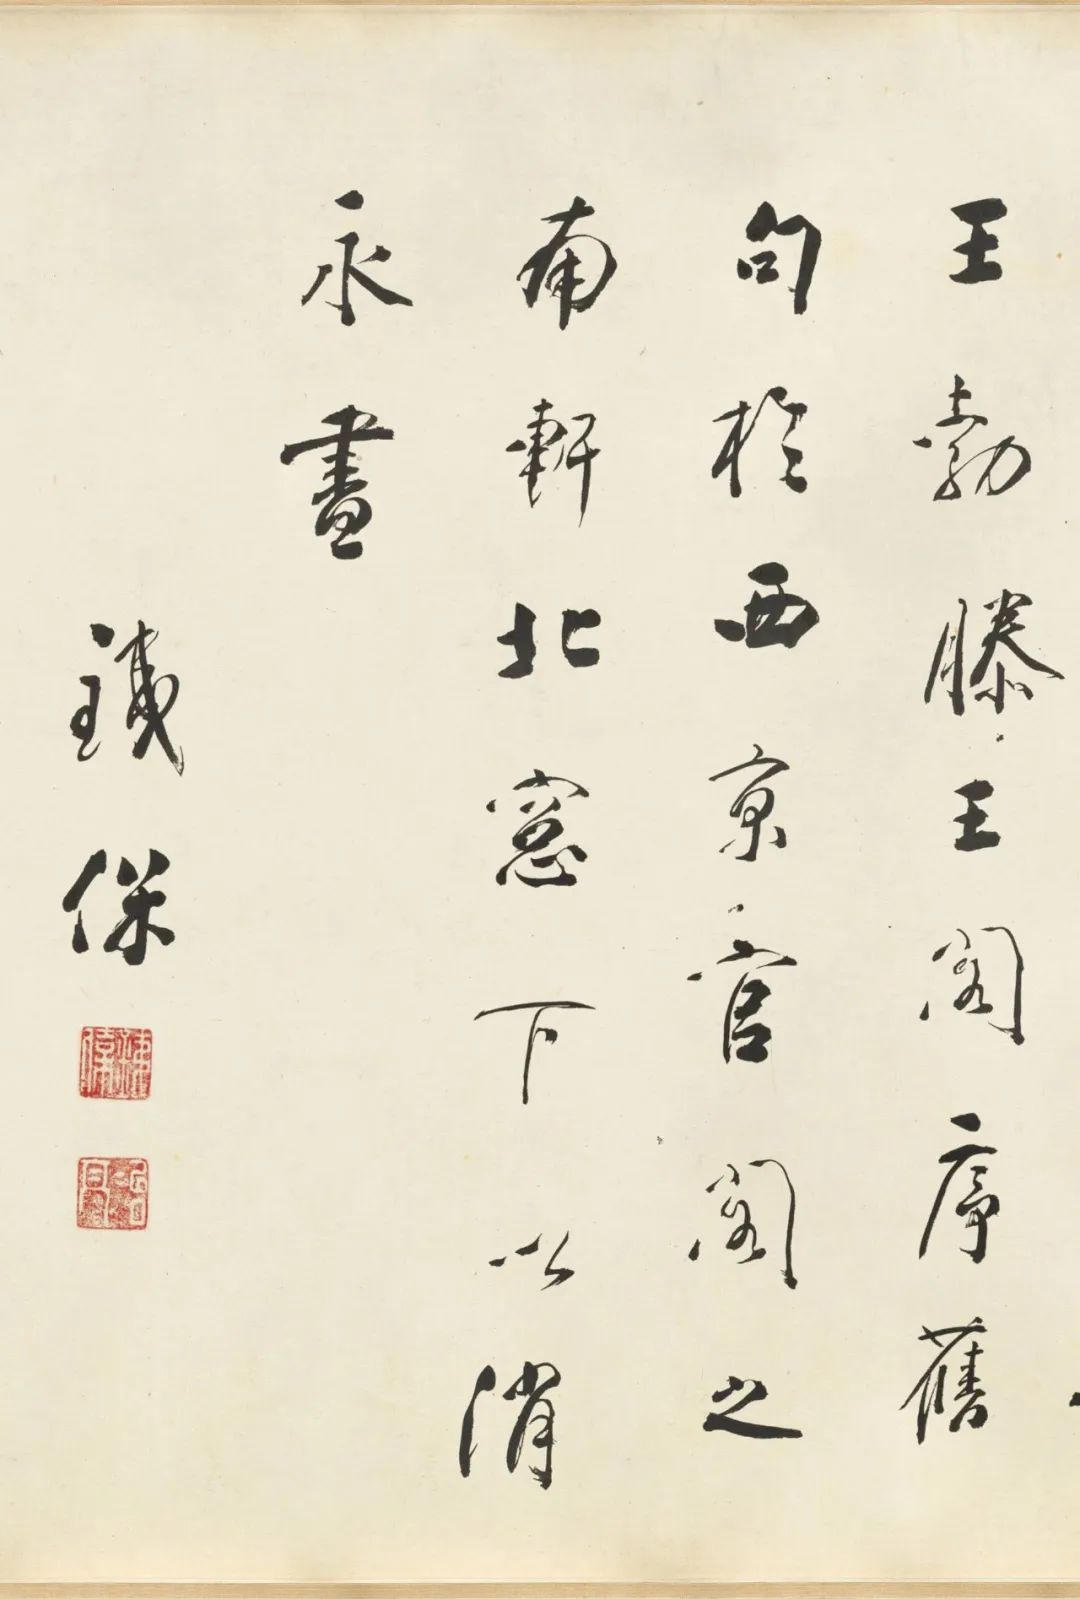 王勃滕王阁序舊
句於西京官阁之
南軒北窓下以消
永晝
鐵保